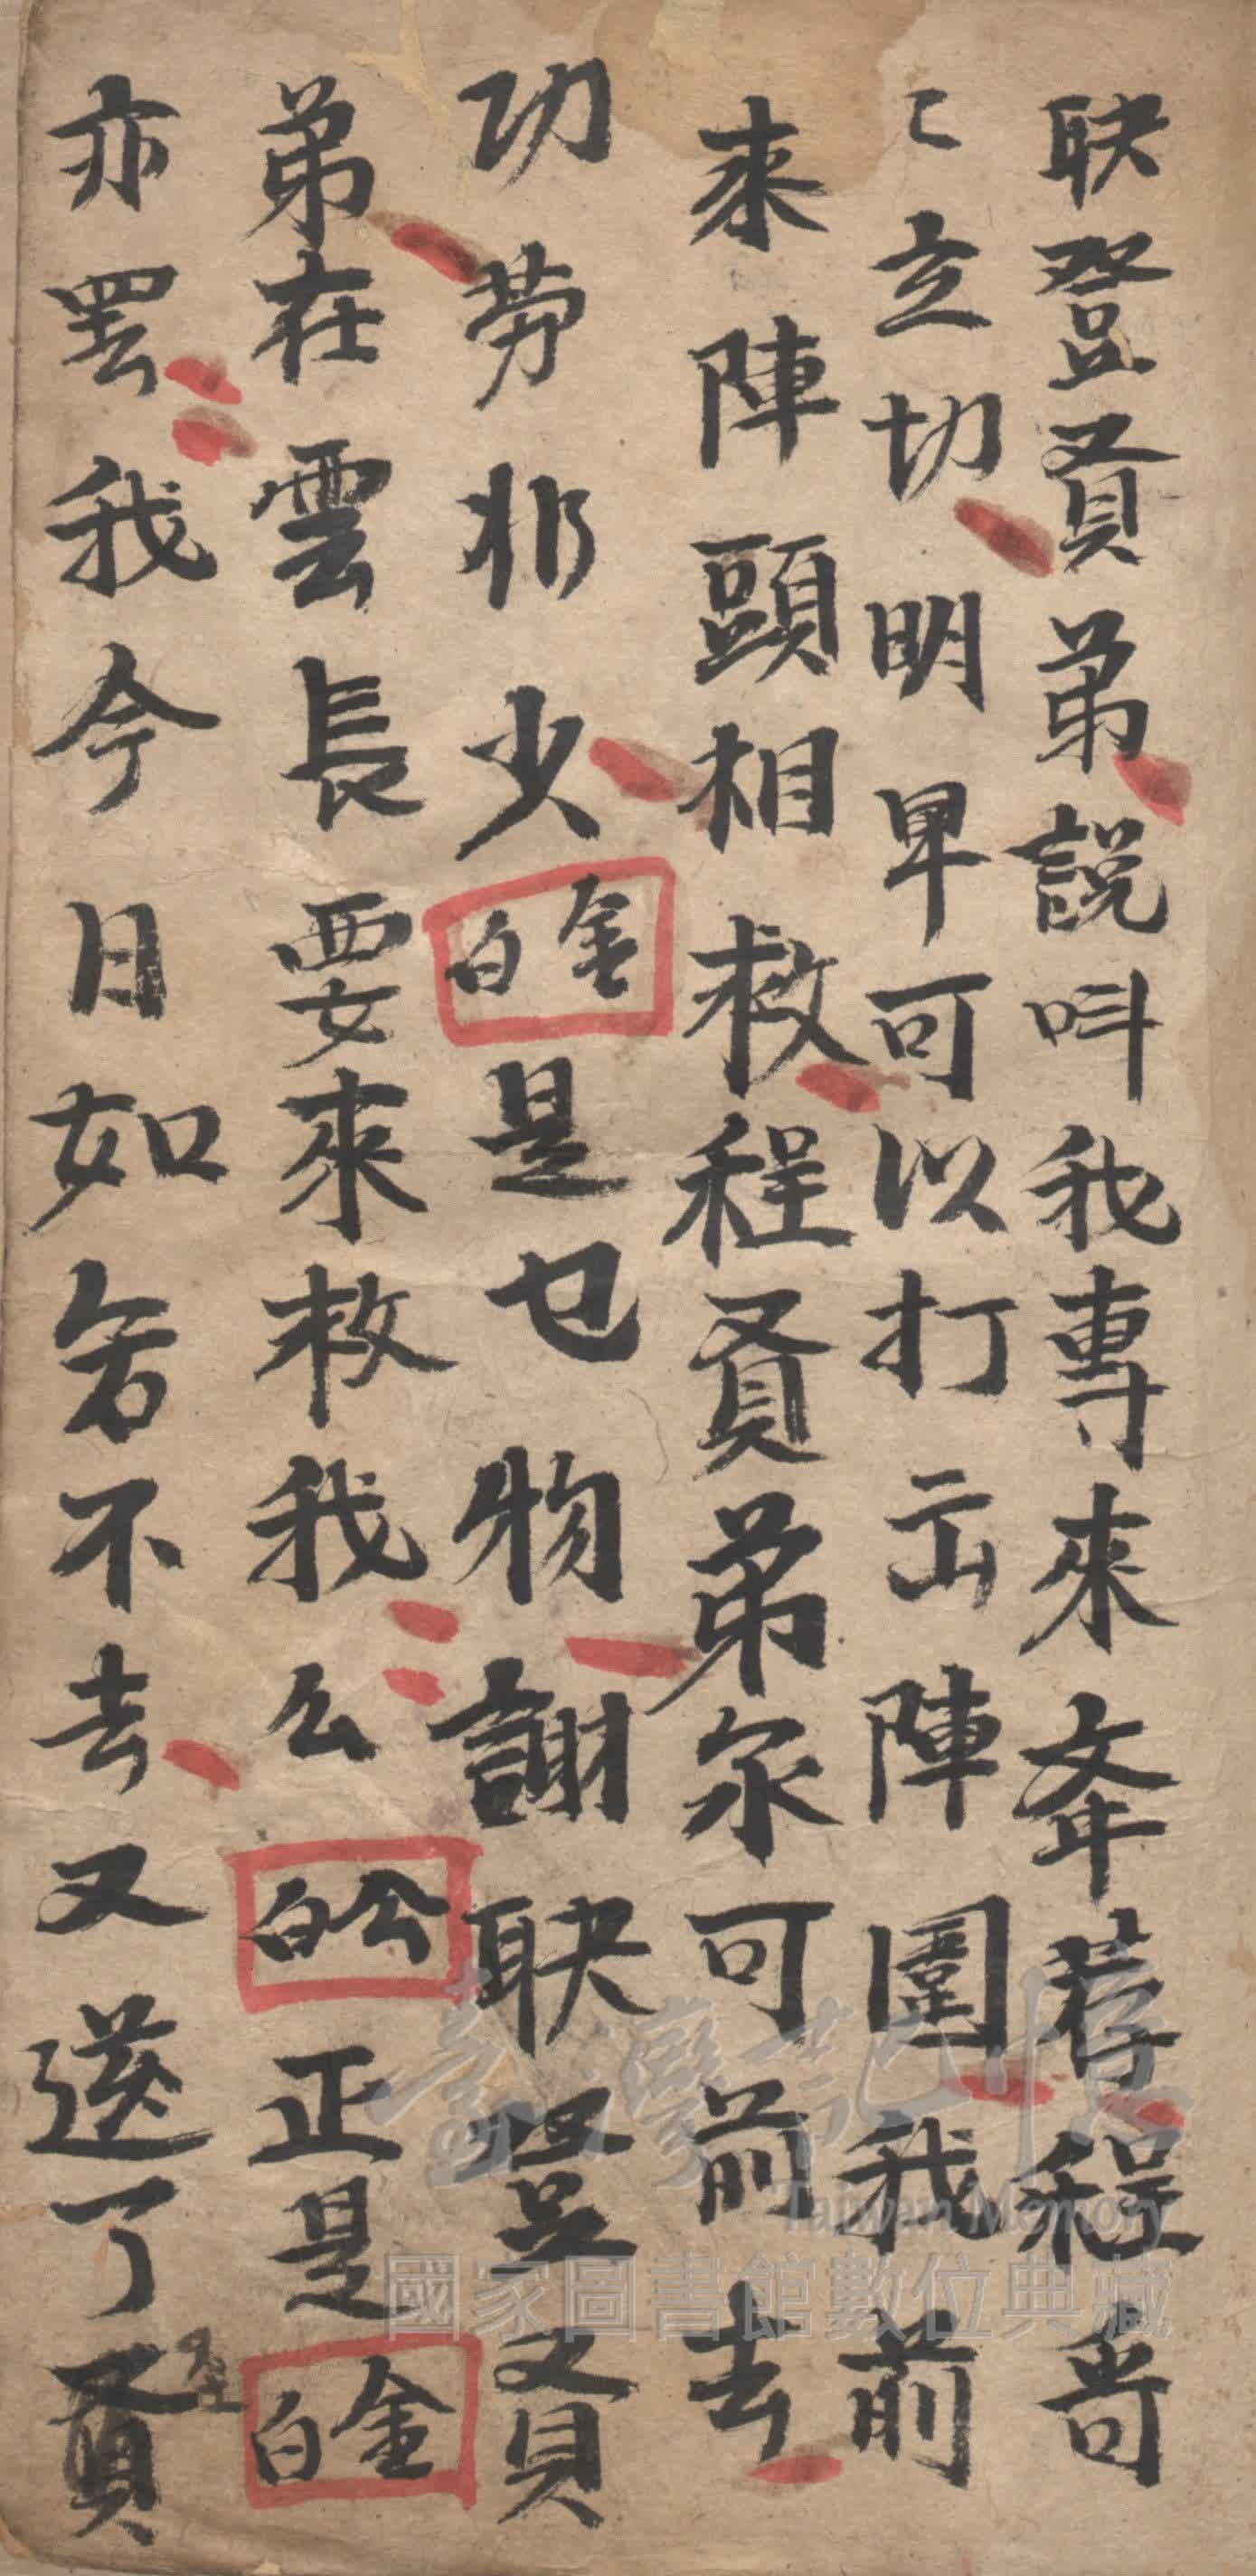 耿登賢弟說呌我專來荐程哥
〻立切明早可以打出陣圍我前
來陣頭相救程賢弟尔可前去
功劳非少金白是乜物謝耿賢
弟在雲長要來救我么公白正是金白
亦罢我今日如若不去又送了賢
臺灣記憶
Taiwan Memory
國家圖書館數位典藏